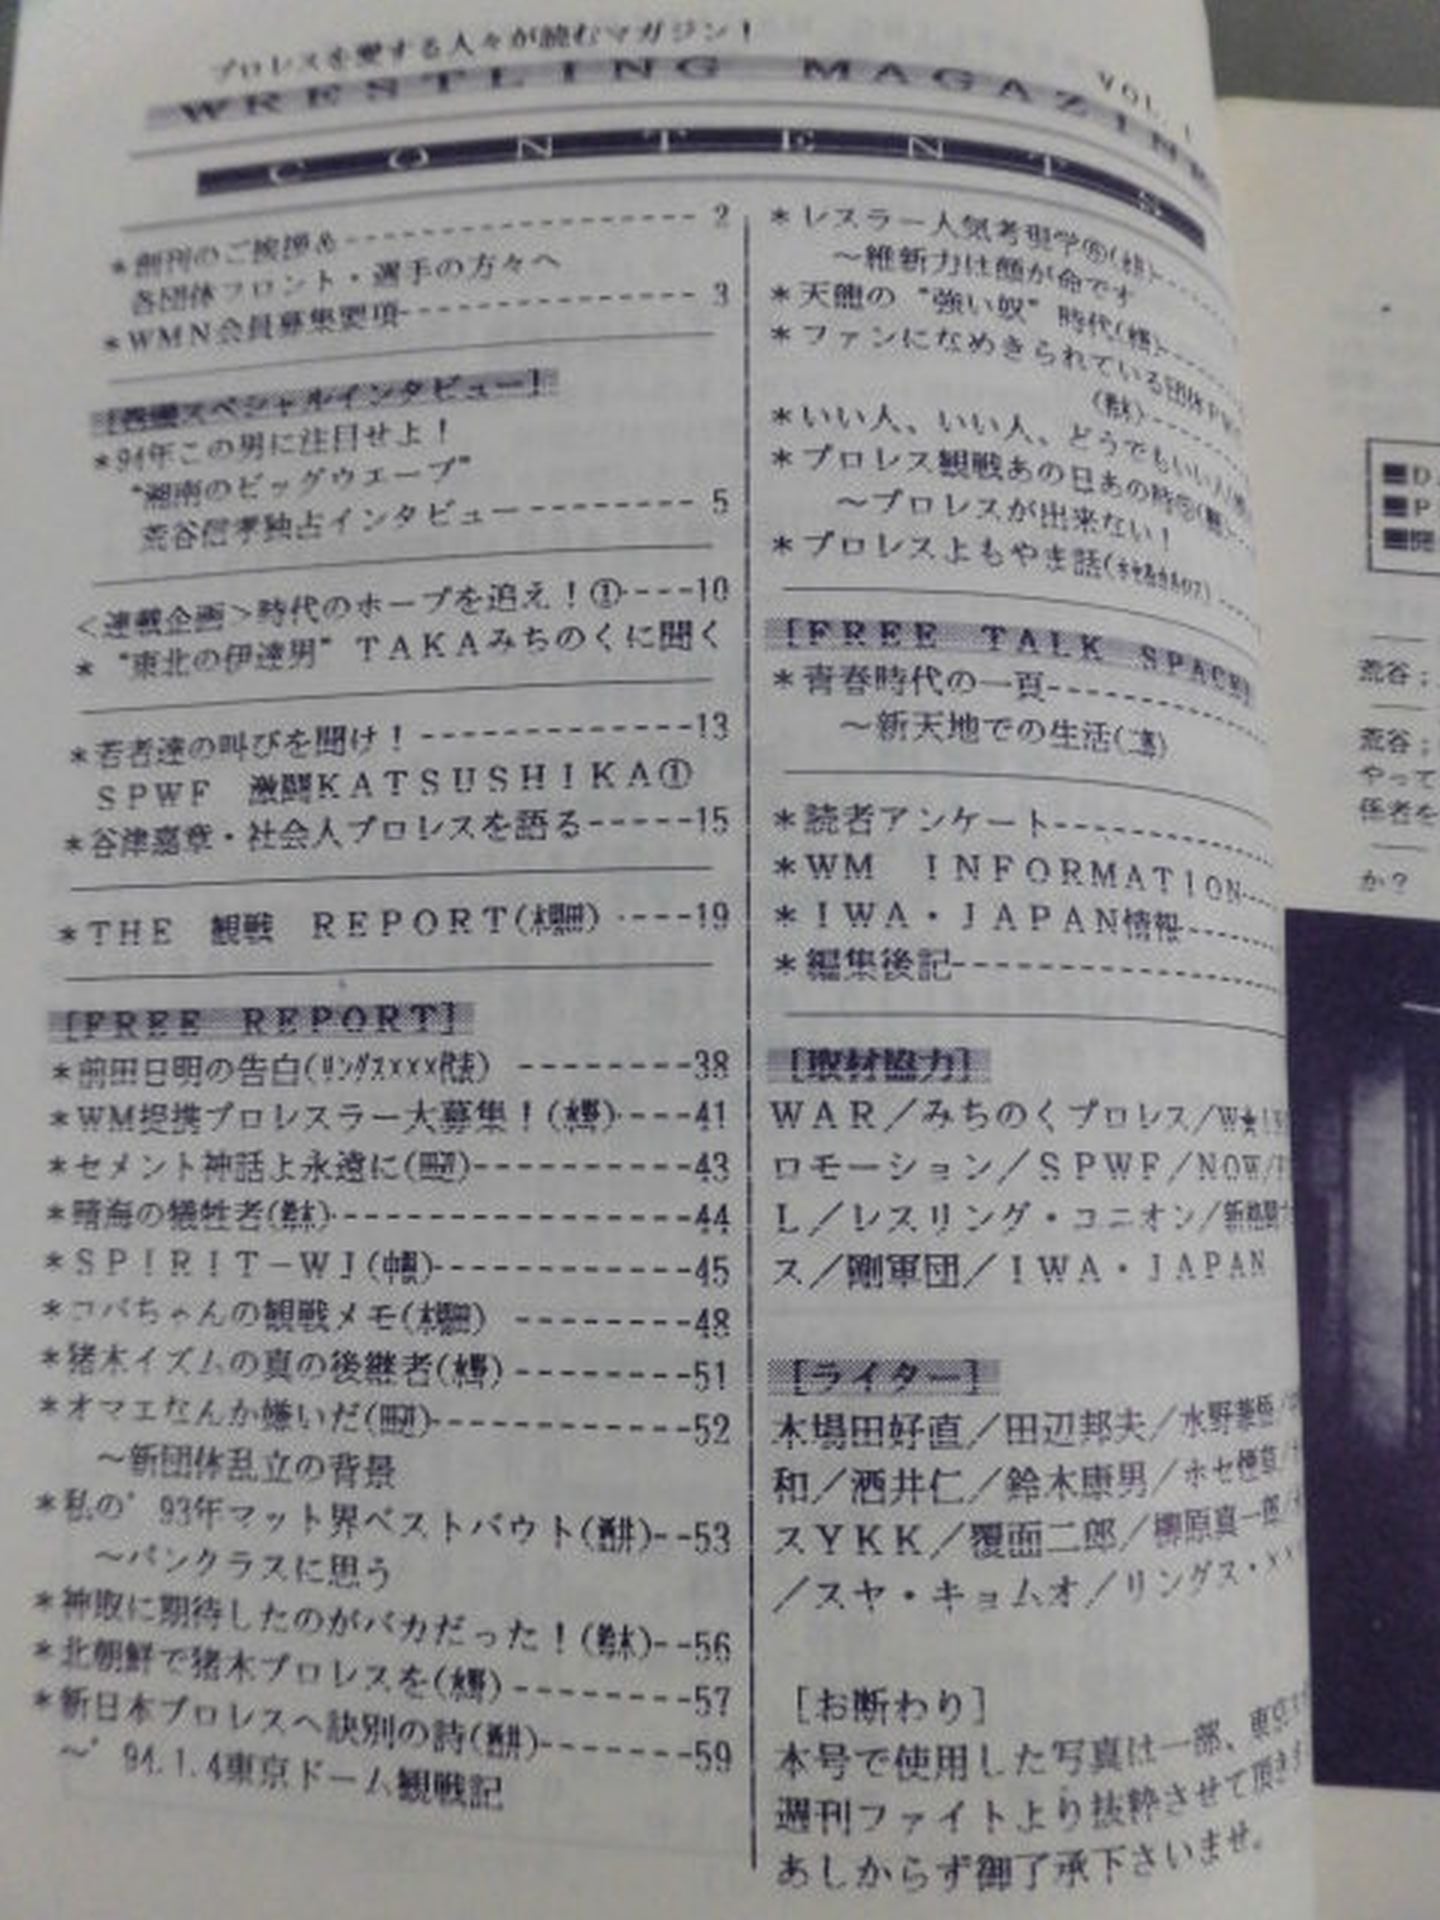 プロレスを愛する人々が読むマガジン!
WRESTLING MAGAZINE
VOL. 1
CONTENTS
*創刊のご挨拶&----------------2
各団体フロント・選手の方々へ
*WMN会員募集要項-------------3
スペシャルインタビュー]
*94年この男に注目せよ!
“湘南のビッグウエーブ”
荒谷信孝独占インタビュー--------5
<連載企画>時代のホープを追え!①----10
*“東北の伊達男”TAKAみちのくに聞く
*若者達の叫びを聞け!------------13
SPWF 激闘KATSUSHIKA①
*谷津嘉章・社会人プロレスを語る-----15
*THE 観戦 REPORT(木場田)----19
[FREE REPORT]
*前田日明の告白(リングスxxx代表) -------38
*WM提携プロレスラー大募集!(水野)----41
*セメント神話よ永遠に(田辺)----------43
*晴海の犠牲者(鈴木)----------------44
*SPIRIT-WJ()------------45
*コバちゃんの観戦メモ(木場田) --------48
*猪木イズムの真の後継者(水野)--------51
*オマエなんか嫌いだ(田辺)-----------52
~新団体乱立の背景
*私の’93年マット界ベストバウト(酒井)--53
~パンクラスに思う
*神取に期待したのがバカだった!(鈴木)--56
*北朝鮮で猪木プロレスを(水野)--------57
*新日本プロレスへ訣別の詩(酒井)-------59
~’94.1.4東京ドーム観戦記
*レスラー人気考現学
~維新力は顔が命です
*天龍の“強い奴”時代
*ファンになめきられている団体
*いい人、いい人、どうでもいい人
*プロレス観戦あの日あの時
~プロレスが出来ない!
*プロレスよもやま話
[FREE TALK SPACE]
*青春時代の一頁----------
~新天地での生活
*読者アンケート-----------
*WM INFORMATION---
*IWA・JAPAN情報------
*編集後記----------------
[取材協力]
WAR/みちのくプロレス/W★I
ロモーション/SPWF/NOW/
L/レスリング・ユニオン/新格闘
ス/剛軍団/IWA・JAPAN
[ライター]
木場田好直/田辺邦夫/水野
和/酒井仁/鈴木康男/ホセ
スYKK/覆面二郎/柳原真一郎
/スヤ・キョムオ/リングス・xx
[お断わり]
本号で使用した写真は一部、東京
週刊ファイトより抜粋させて頂きま
あしからず御了承下さいませ。
■D
■P
荒谷;
荒谷;
やって
係者を
か?